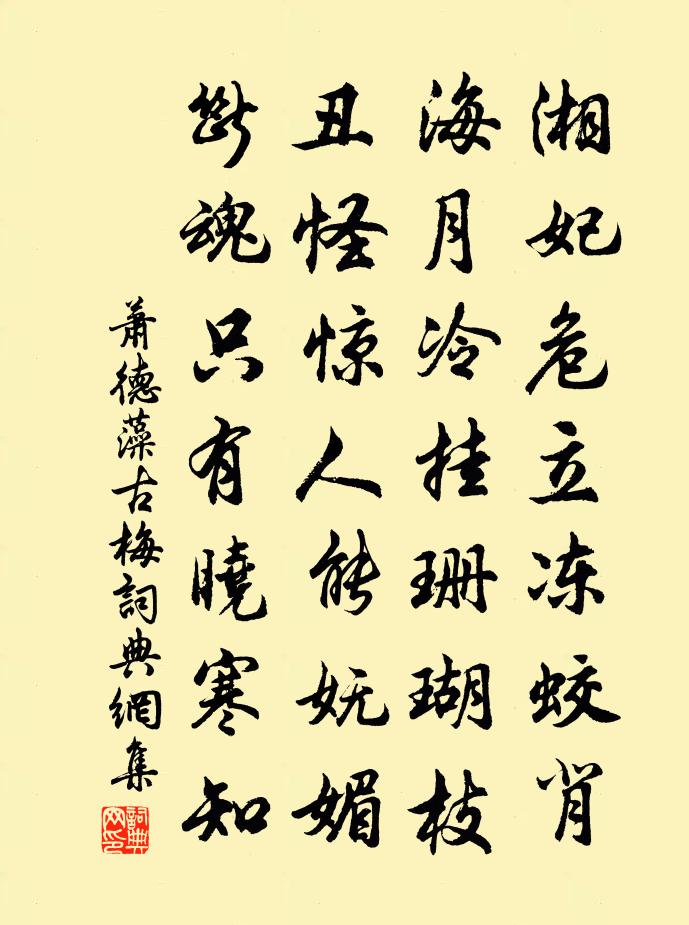 湘妃危立冻蛟脊
海月冷挂珊瑚枝
丑怪惊人能妩媚
斷魂只有曉寒知
蕭德藻古梅詞典網集
詞典网印